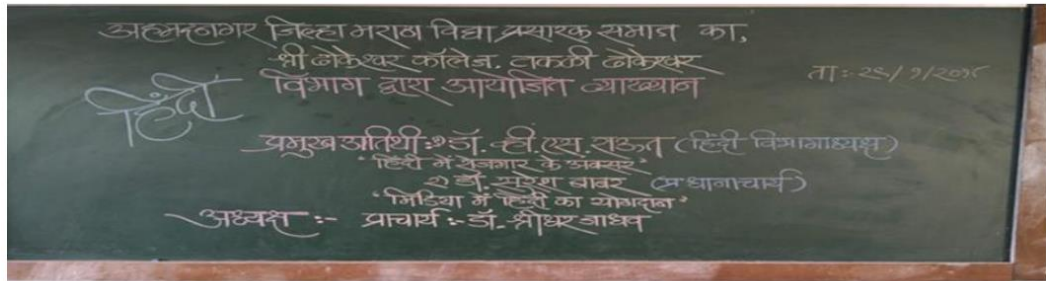 अहमदनगर जिल्हा मराठा विद्या प्रसारक समाज का,
श्री ढोकेश्वर कॉलेज. टाकळी ढोकेश्वर
हिंदी विभाग द्वारा आयोजित व्याख्यान
ता:-२९/१/२०१८
प्रमुख अतिथी:-१ डॉ. व्ही. एस. राऊत (हिंदी विभागाध्यक्ष)
"हिंदी में रोजगार के अवसर"
२ डॉ. सुरेश बाबर (प्रधानाचार्य)
"मिडिया में हिंदी का योगदान"
अध्यक्ष :- प्राचार्य :- डॉ. श्रीधर जाधव